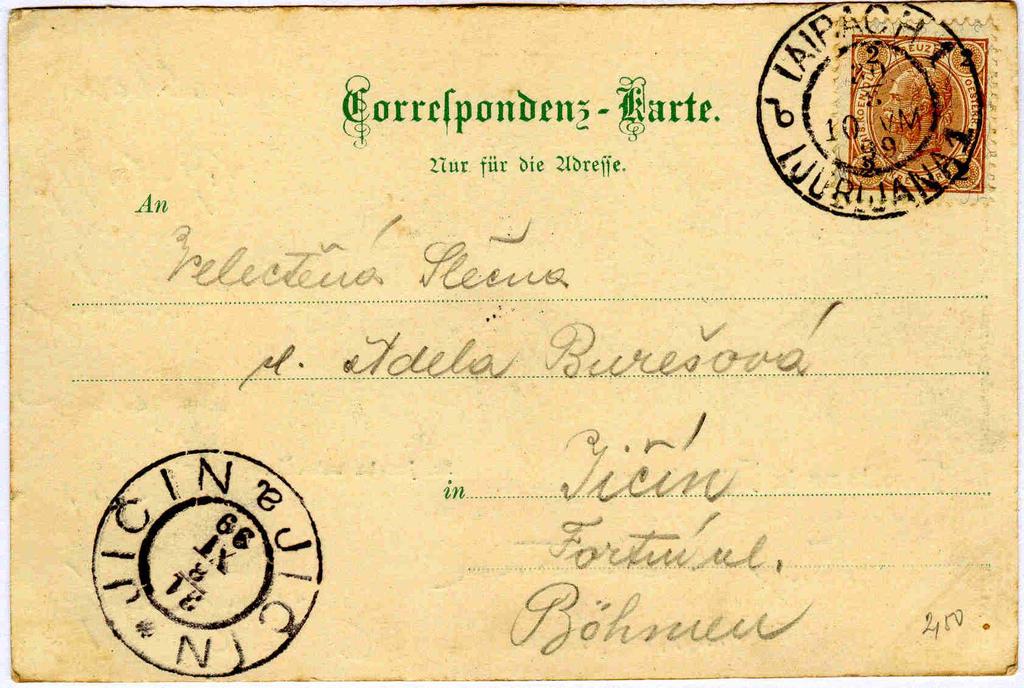 Correspondenz-Karte.
Nur für die Adresse.
LAIBACH 1
LJUBLJANA 1
10 VM
2 KREUZER 2
An
Velectěná Slečna
sl. Adela Burešová
in Jičín
Fortní ul.
Böhmen
2,50
JIČÍN a JIČIN *
XI
99